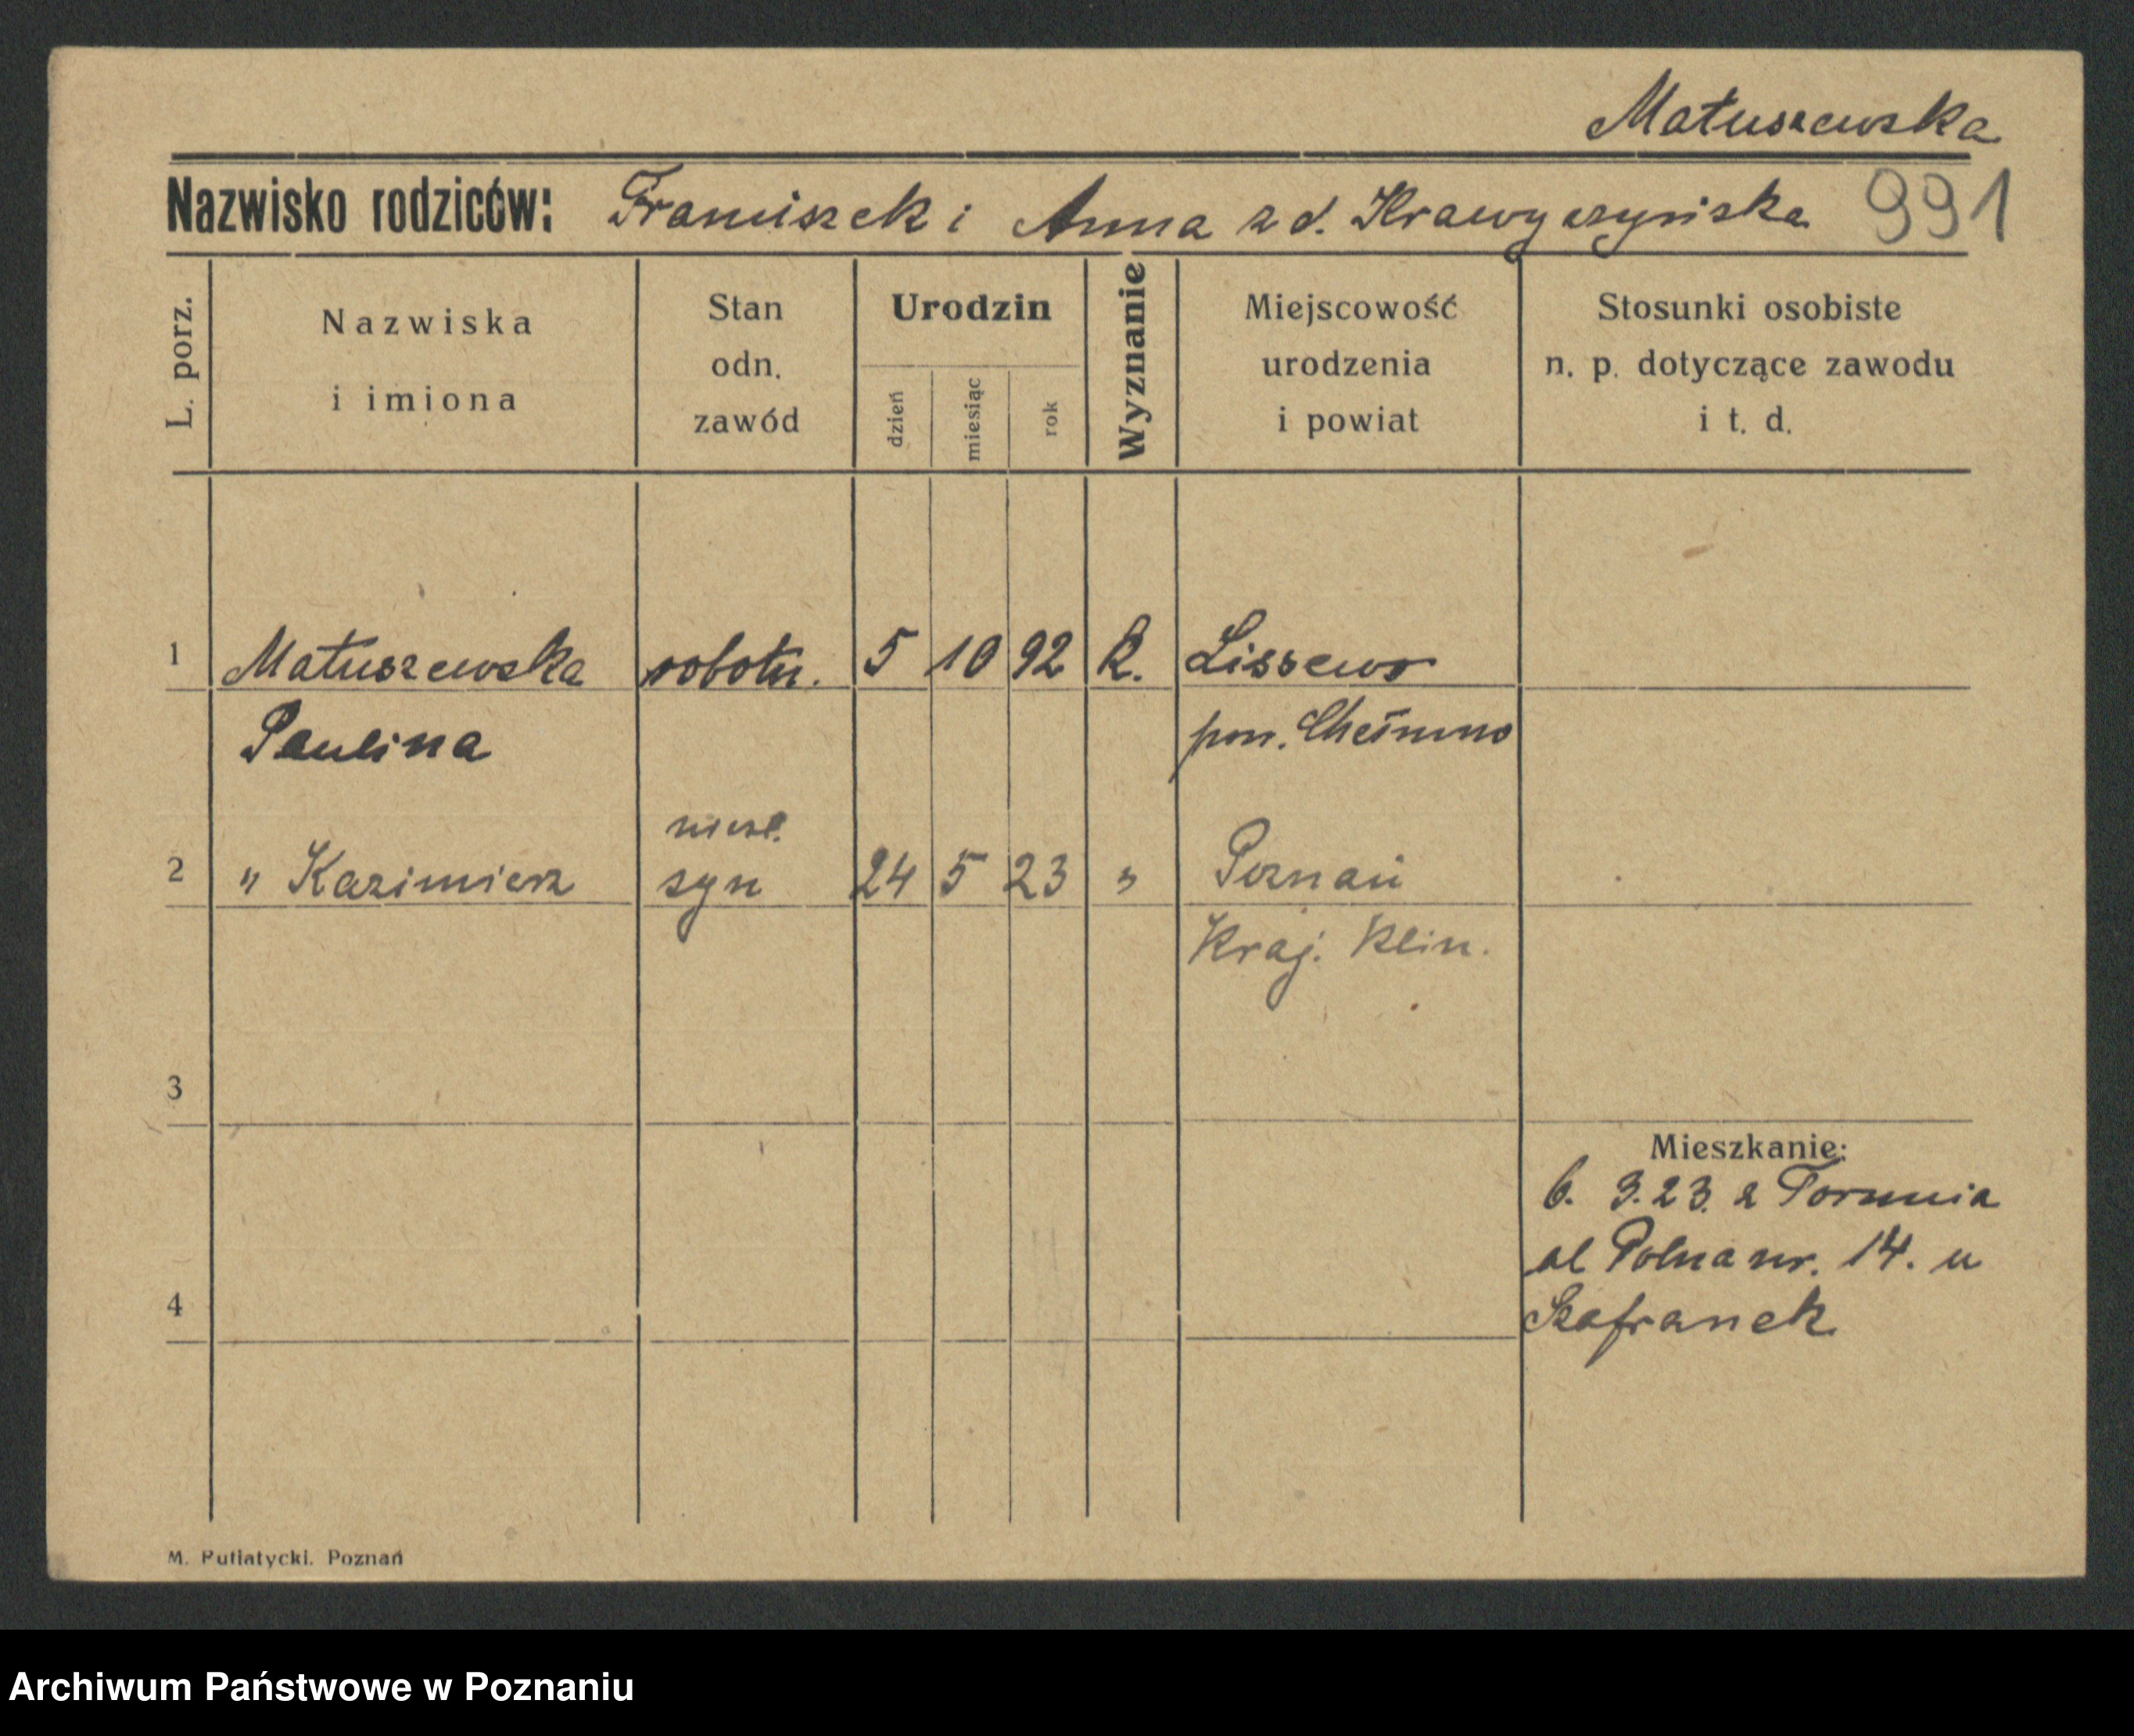 Matuszewska
Nazwisko rodziców: Franciszek i Anna z d. Krawyczyńska 991
L. porz.
Nazwiska
i imiona
Stan
odn.
zawód
Urodzin
dzień
miesiąc
rok
Wyznanie
Miejscowość
urodzenia
i powiat
Stosunki osobiste
n. p. dotyczące zawodu
i t. d.
1 Matuszewska robotn. 5 10 92 K. Lissewo
Paulina pow. Chełmno
nieśl.
2 " Kazimierz syn 24 5 23 " Poznań
Kraj. Klin.
3
Mieszkanie:
6. 3. 23. z Torunia
ul Polna nr. 14. u
4 Szafranek
M. Putiatycki. Poznań
Archiwum Państwowe w Poznaniu